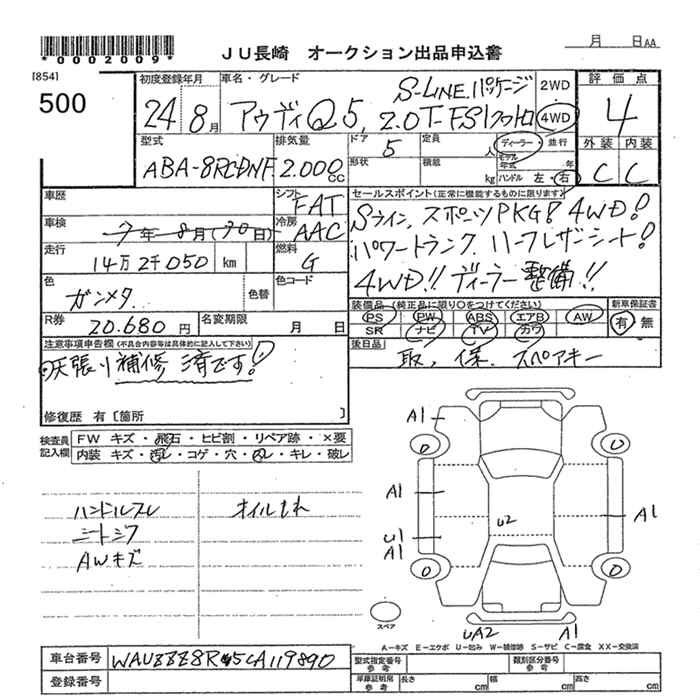 *0002009*
JU長崎 オークション出品申込書
月 日AA
[854]
500
初度登録年月
24 8月
車名・グレード
S-LINE.パッケージ
アウディQ5, 2.0T-FSIクワトロ
2WD
4WD
評価点
4
外装 内装
C C
型式
ABA-8RCDNF
排気量
2.000cc
ドア
5
定員
人
形状
積載
kg
ディーラー・並行
モデル年式 年
ハンドル 左・右
車歴
シフト
FAT
車検
7年 8月(30日)
冷房
AAC
走行
14万2千050 km
燃料
G
色
ガンメタ.
色替
色コード
R券
20.680円
名変期限
月 日
セールスポイント(正常に機能するものに限ります)
Sライン、スポーツPKG! 4WD!
パワートランク.ハーフレザーシート!
4WD!! ディーラー整備!!
装備品(純正品に限り○をつけてください)
PS PW ABS エアB AW
SR ナビ TV カワ
新車保証書
有 無
後日品
取、保、スペアキー
注意事項申告欄(不具合内容等は具体的に記入して下さい)
天張り補修済です!
修復歴 有[箇所 ]
検査員記入欄
FW キズ・飛石・ヒビ割・リペア跡・×要
内装 キズ・汚レ・コゲ・穴・スレ・キレ・破レ
ハンドルスレ
シートシワ
AWキズ
オイルもれ
A1
A1
U1
A1
U2
A1
UA2
A1
スペア
A―キズ E―エクボ U―凹み W―補修跡 S―サビ C―腐食 XX―交換済
車台番号
WAUZZZ8R*5CA119890
登録番号
型式指定番号
参考
類別区分番号
参考
車庫証明用
参考
長さ cm 幅 cm 高さ cm